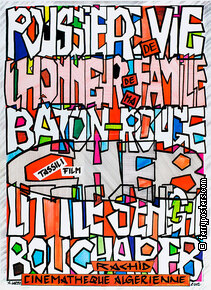 POUSSIERE VIE
DE
L'HONNEUR FAMILLE
DE
MA
BATON-ROUGE
CHEB
TASSILI
FILM
LITTLE SENEGAL
BOUCHAREB
RACHID
CINEMATHEQUE ALGERIENNE
© terryposters.com